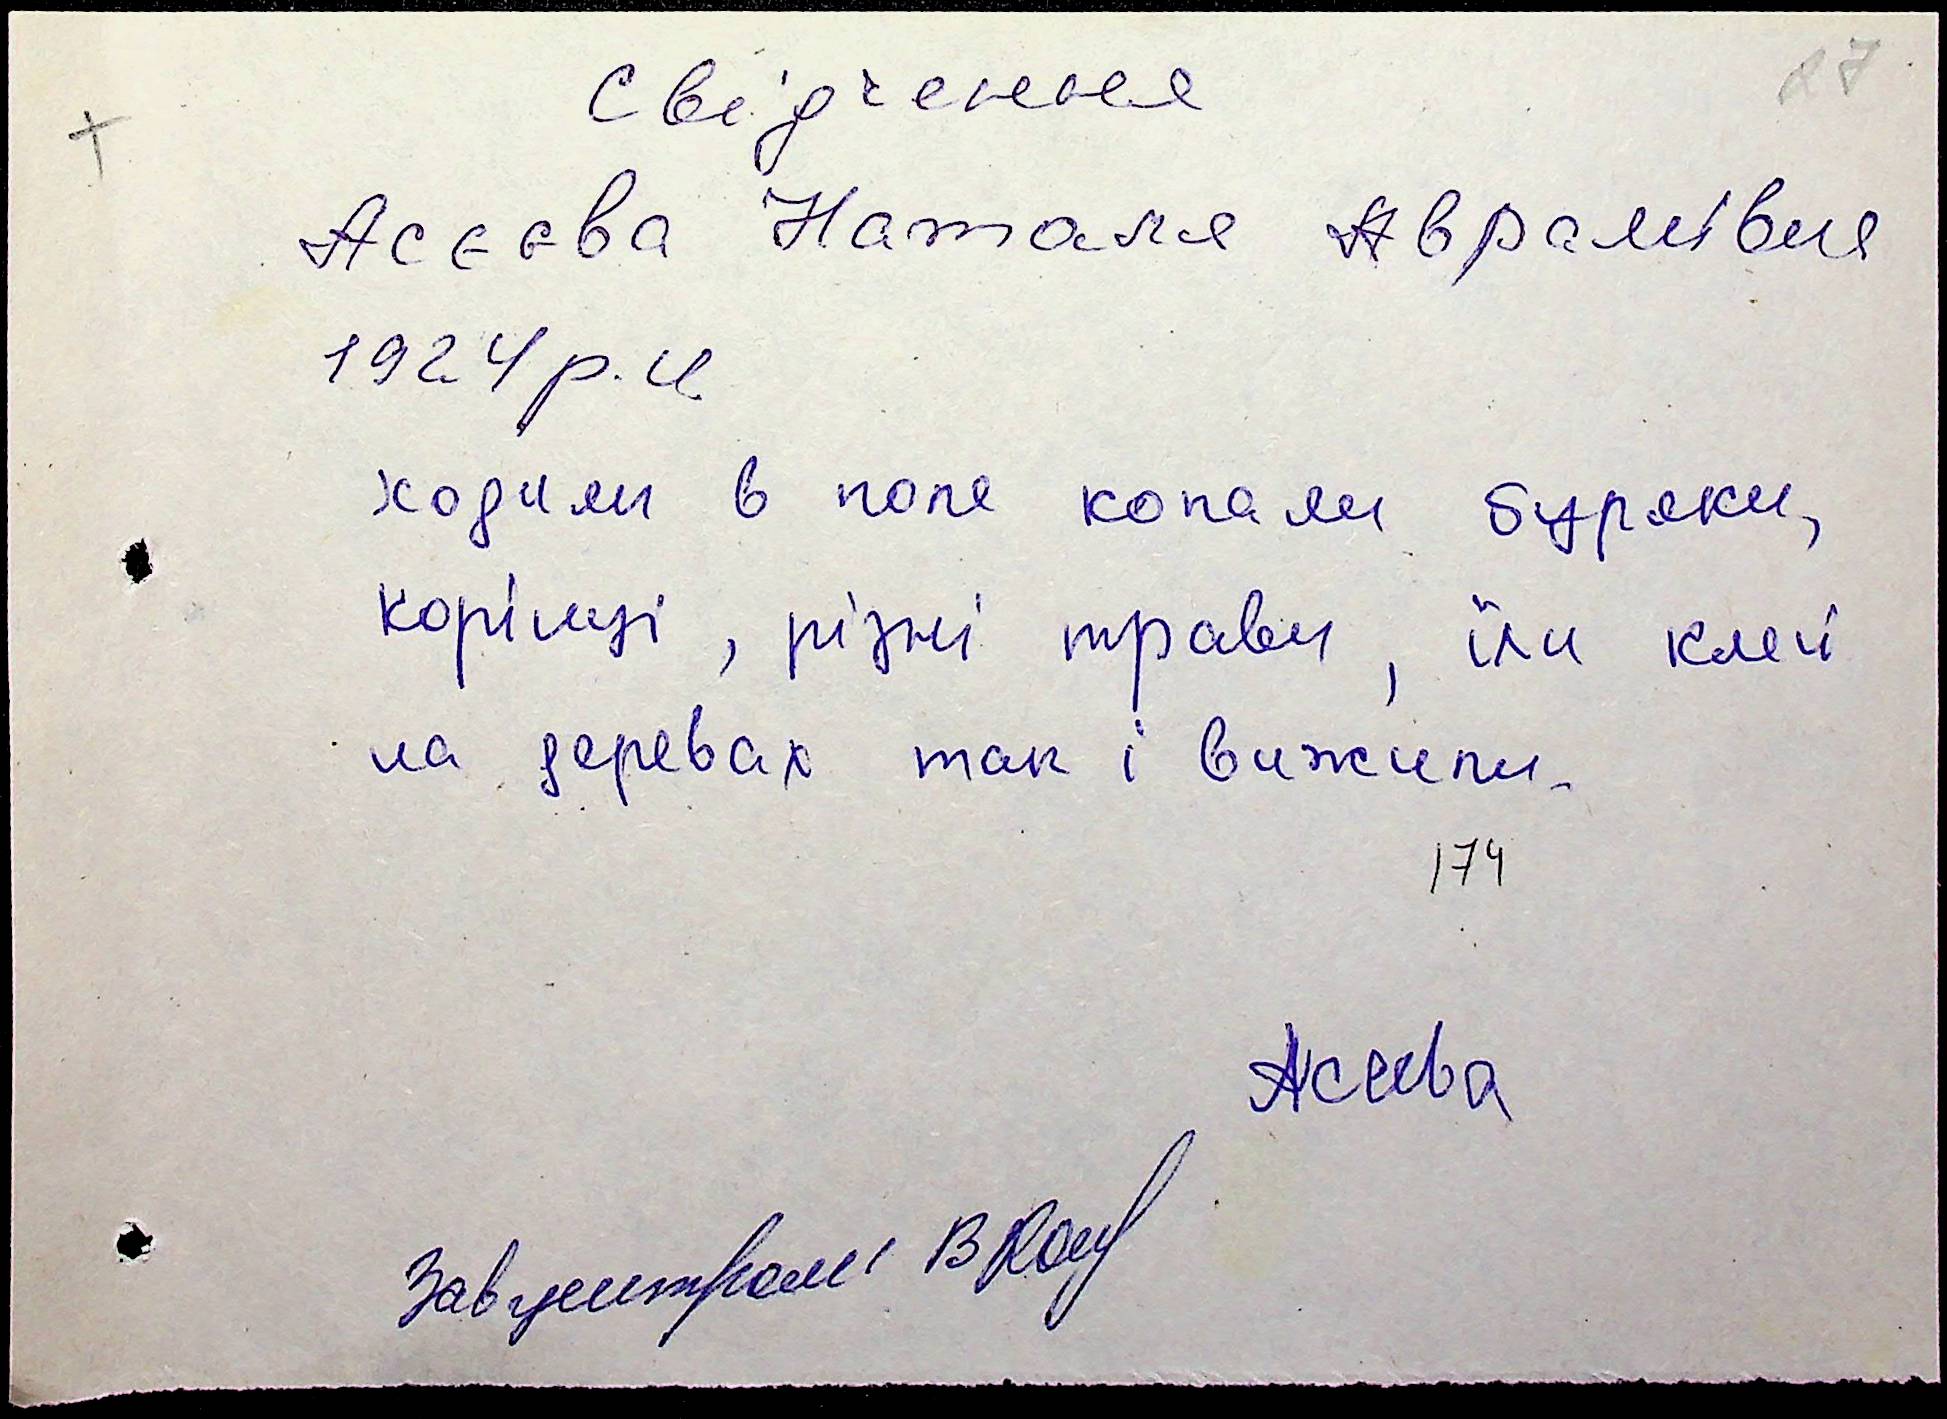 27
Свідчення
Асєєва Наталя Аврамівня
1924 р.н
ходили в поле копали буряки,
корінці, різні трави, їли клей
на деревах так і вижили.
174
Асєєва
Завцентром В